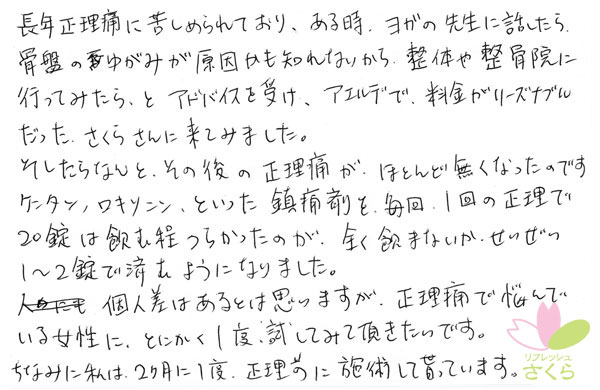 長年正理痛に苦しめられており、ある時、ヨガの先生に話したら、
骨盤のゆがみが原因かも知れないから、整体や整骨院に
行ってみたら、と アドバイスを受け、アエルデで、料金がリーズナブル
だった、さくらさんに来てみました。
そしたらなんと、その後の正理痛が、ほとんど無くなったのです
ケンタン、ロキソニン、といった鎮痛剤を、毎回、1回の正理で
20錠は飲む程つらかったのが、全く飲まないか、せいぜい
1〜2錠で済むようになりました。
個人差はあるとは思いますが、正理痛で悩んで
いる女性に、とにかく1度、試してみて頂きたいです。
ちなみに私は、2ヶ月に1度、正理前に施術して貰っています。
リフレッシュ
さくら